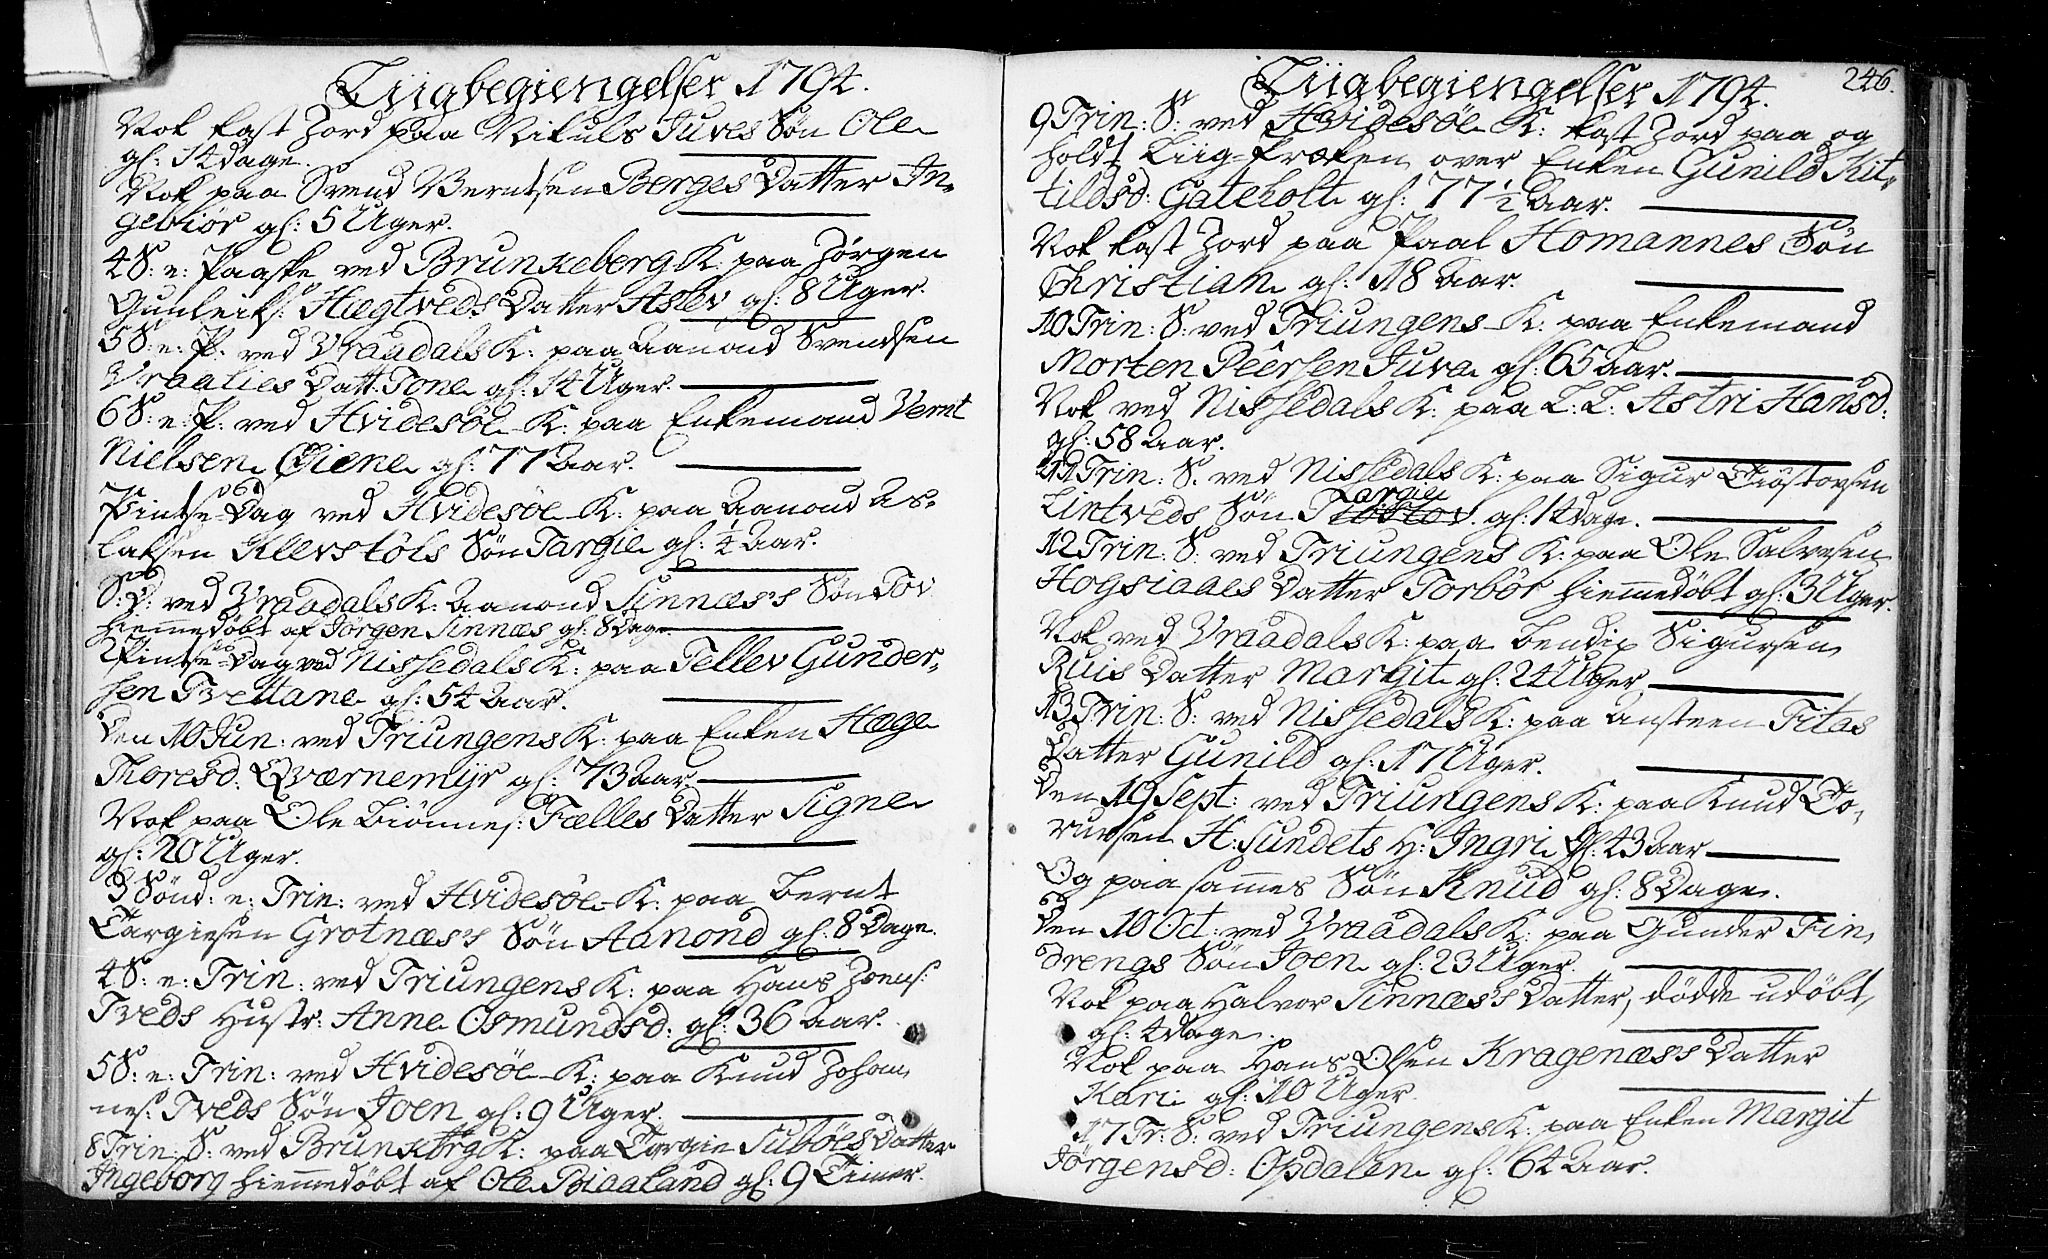 Liigbegiengelser 1794.
Nok kast Jord paa Nikuls Juves Søn Ole
gl: 14 dage.
Nok paa Svend Berntsen Berges Datter In-
gebiör gl: 5 Uger.
4 S: e: Paaske ved Brunkeberg K: paa Jörgen
Gunleiks: Hægtveds Datter Aslev gl: 8 Uger.
5 S: e: P: ved Vraadals K: paa Aanond Svendsen
Vraalies Datt: Tone gl: 14 Uger.
6 S: e: P: ved Hvidesøe K: paa Enkemand Vernt
Nielsen Øiene gl: 77 Aar.
Pintse-Dag ved Hvidesøe K: paa Aanond As-
laksen Klevstöls Søn Targie gl: 1/4 Aar.
S: D: ved Vraadals K: Aanond Sinnæs's Søn Tov
hiemmedöbt af Jørgen Sinnæs gl: 8 Dage.
2 Pintse-Dag ved Nissedals K: paa Tellev Gunder-
sen Tveitane gl: 54 Aar.
Den 10 Jun: ved Triungens K: paa Enken Hæge
Thoresd: Qværnemyr gl: 73 Aar.
Nok paa Ole Biönnes: Fælles Datter Signe
gl: 20 Uger.
3 Sönd: e: Trin: ved Hvidesöe K: paa Bernt
Targiesen Grotnæs's Søn Aanond gl: 8 Dage.
4 S: e: Trin: ved Triungens K: paa Hans Joens:
Tveds Hustr: Anne Osmundsd: gl: 36 Aar.
5 S: e: Trin: ved Hvidesöe K: paa Knud Johan
nes: Tveds Søn Joen gl: 9 Uger.
8 Trin: S: ved Brunkebrg K: paa Targie Suböes Datter
Ingeborg hiemmedöbt af Ole Biaaland gl: 9 Timer.
Liigbegiengelser 1794.
246.
9 Trin: S: ved Hvidesøe K: kast Jord paa og
holdt Liig-Præken over Enken Gunild Kit-
tildsd: Gateholt gl: 77 1/2 Aar.
Nok kast Jord paa Paal Homannes Søn
Christian gl: 18 Aar.
10 Trin: S: ved Triungens K: paa Enkemand
Morten Peersen Juva gl: 65 Aar.
Nok ved Nissedals K: paa L: L: Astri Hansd:
gl: 58 Aar.
11 Trin: S: ved Nissedals K: paa Sigur Giöstovsen
Targie
Lintveds Søn gl: 14 Dage.
12 Trin: S: ved Triungens K: paa Ole Salvesen
Hogsiaaes Datter Torbör hiemmedöbt gl: 3 Uger.
Nok ved Vraadals K: paa Bendix Sigursen
Ruis Datter Margit gl: 24 Uger.
13 Trin: S: ved Nissedals K: paa Ansteen Fitas
Datter Gunild gl: 17 Uger.
Den 19 Sept: ved Triungens K: paa Knud To-
rursen H: Sundets H: Ingri gl: 43 Aar
Og paa sammes Søn Knud gl: 8 Dage.
Den 10 Oct: ved Vraadals K: paa Gunder Fin
drengs Søn Joen gl: 23 Uger.
Nok paa Halvor Sinnæs's Datter, dödde udöbt,
gl: 4 Dage.
Nok paa Hans Olsen Kragenæss Datter
Kari gl: 10 Uger.
17 Tr: S: ved Triungens K: paa Enken Margit
Jörgensd: Opdalen gl: 64 Aar.